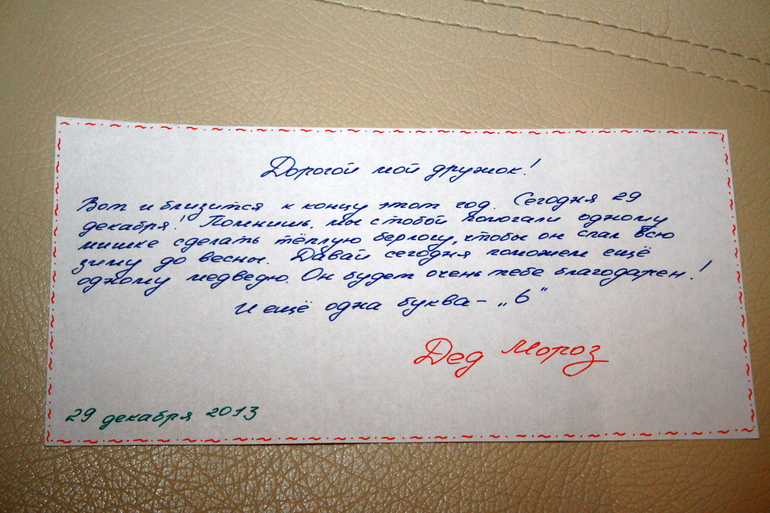 Дорогой мой дружок!
Вот и близится к концу этот год. Сегодня 29
декабря! Помнишь, мы с тобой помогали одному
мишке сделать тёплую берлогу, чтобы он спал всю
зиму до весны. Давай сегодня поможем ещё
одному медведю. Он будет очень тебе благодарен!
И ещё одна буква - „б"
Дед Мороз
29 декабря 2013